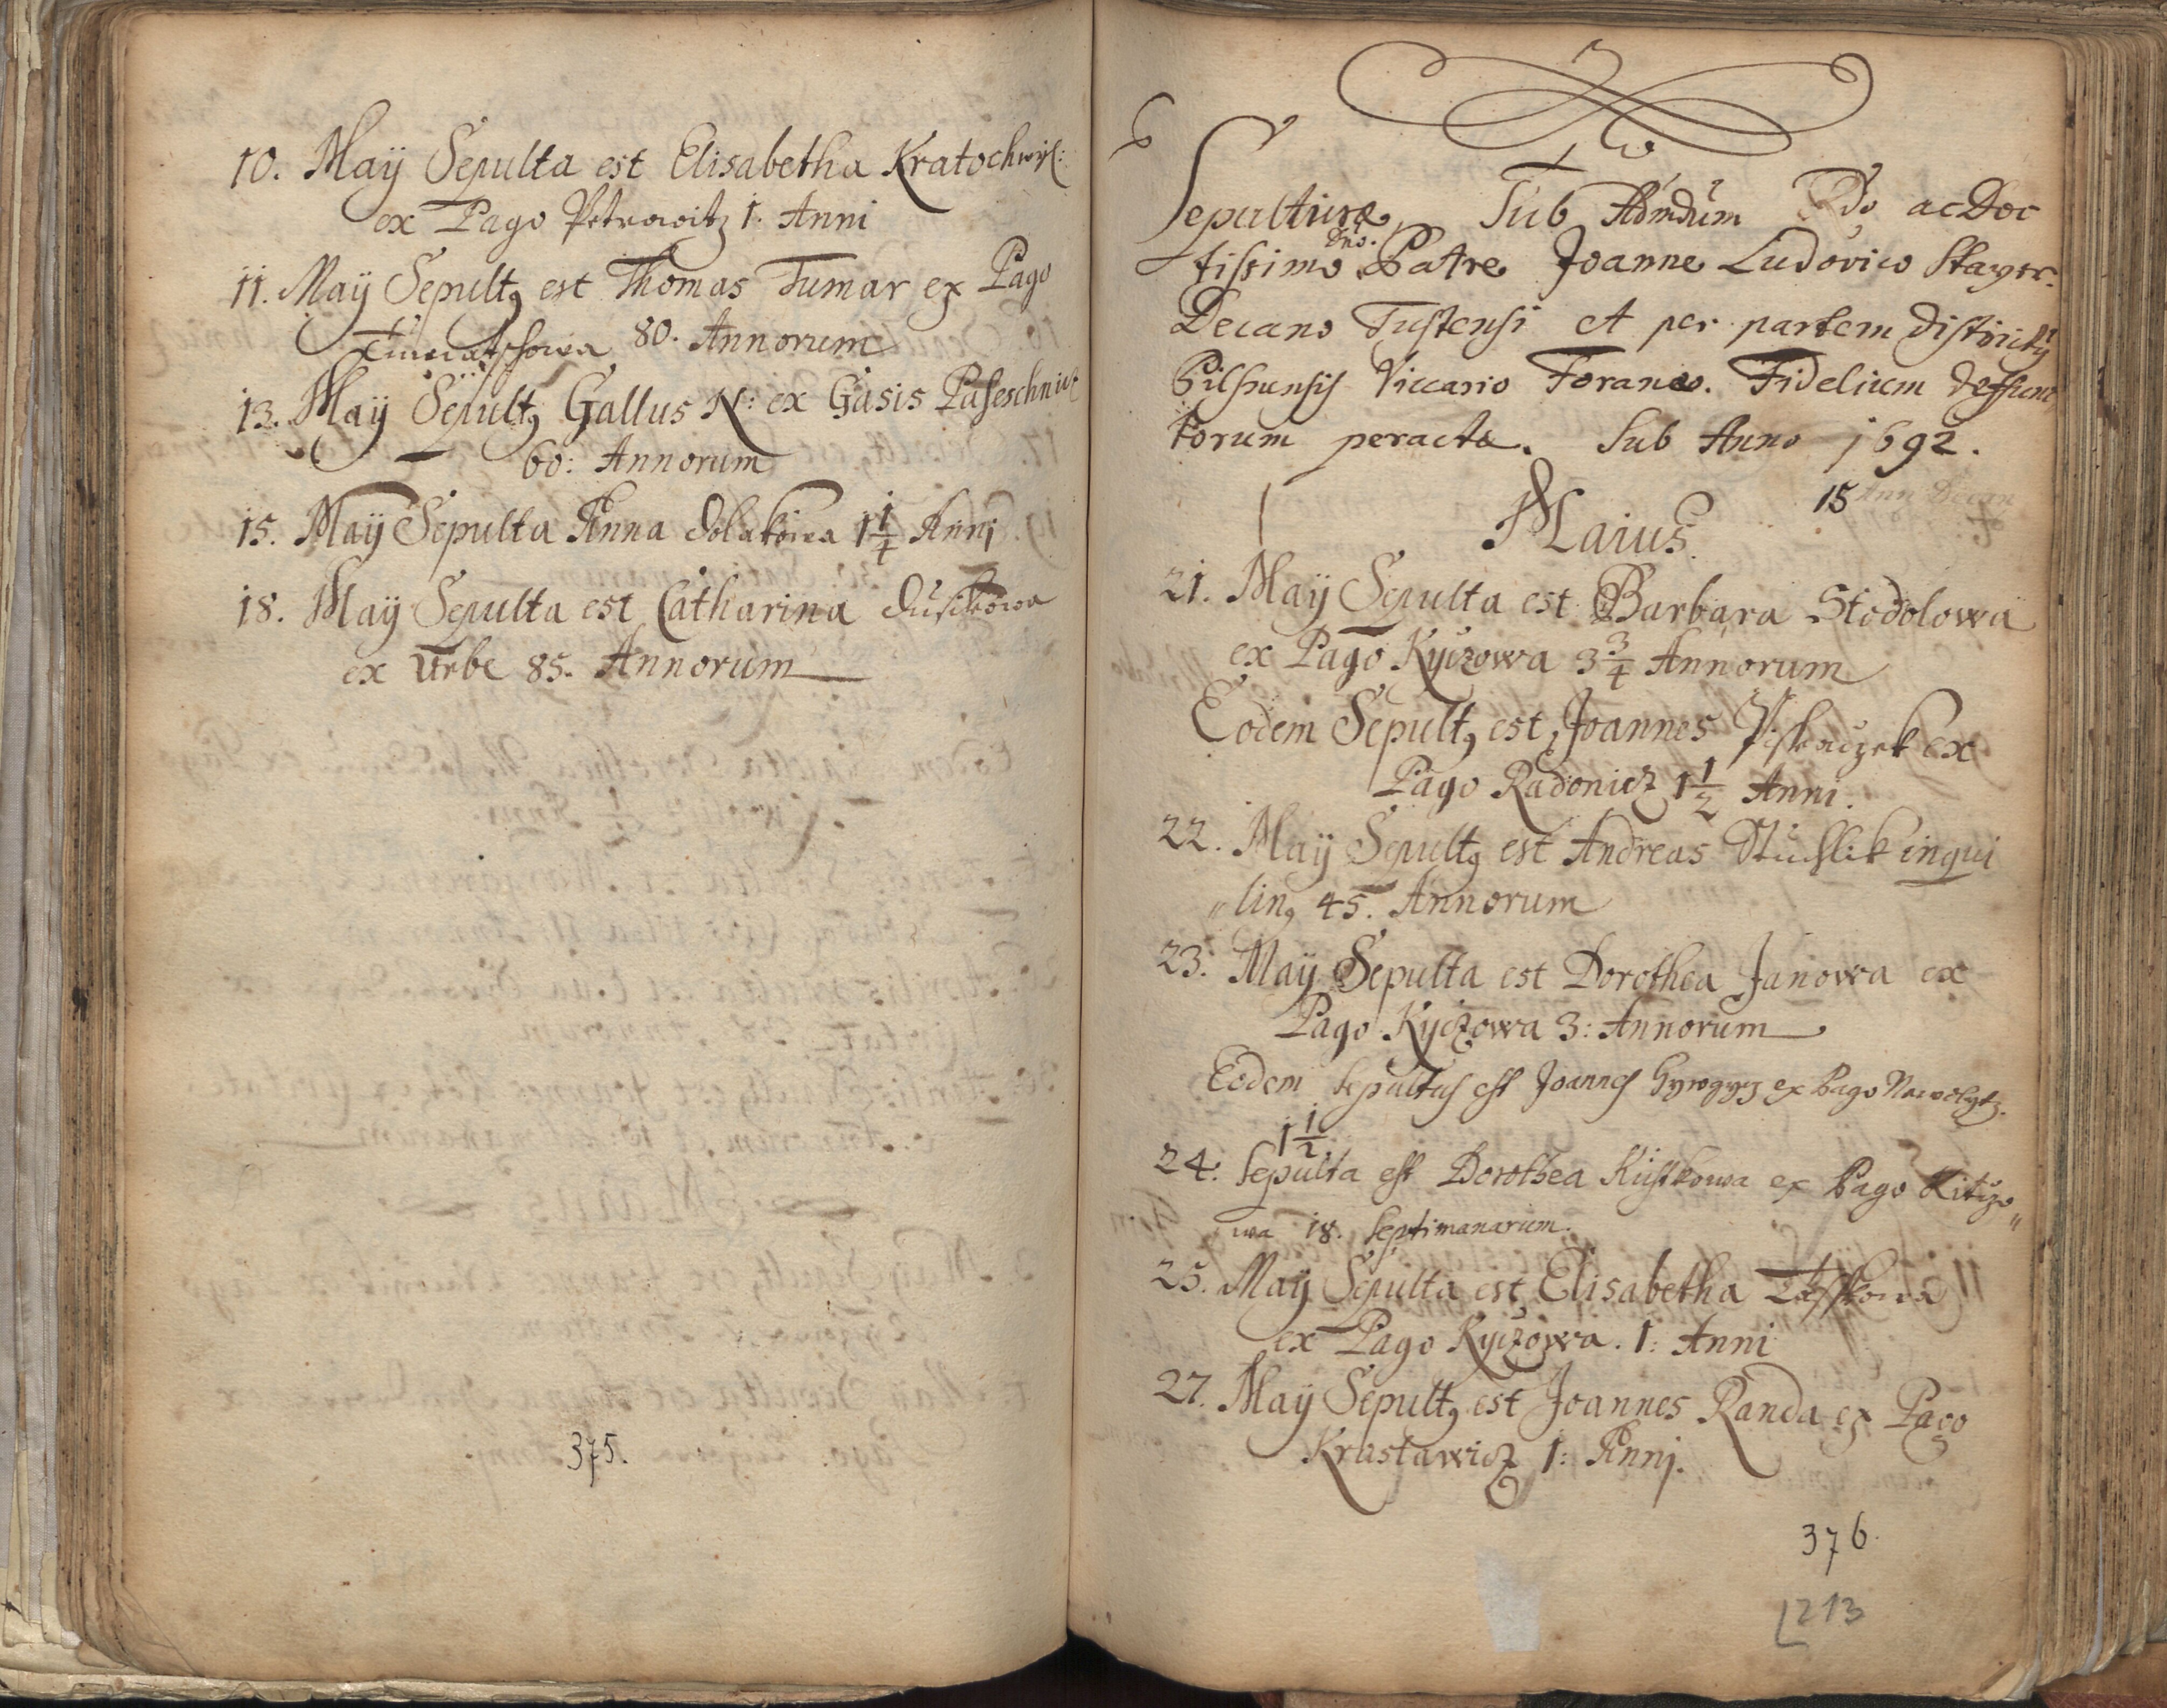 10. Maÿ Sepulta est Elisabetha Kratochwil:
ex Pago Petrowitz 1. Anni
11. Maÿ Sepultꝰ est Thomas Tumar ex Pago
80. Annorum
13. Maÿ Sepultꝰ Gallus N: ex Gasis Paseschniz
60: Annorum
15. Maÿ Sepulta Anna dolakowa 1 1/4 Annj
18. Maÿ Sepulta est Catharina dusikowa
ex Urbe 85. Annorum
375.
Sepulturæ Sub Admdúm Rdo ac Doc
tissimo Dno. Patre Joanne Ludovico Stayer.
Decano Tustensi et per partem districtÿ
Pilsnensis Viccario Foraneo. Fidelium deffunc
torum peracta. Sub Anno 1692.
15
Maius.
21. Maÿ Sepulta est Barbara Stodolowa
ex Pago Kyczowa 3 3/4 Annorum
Eodem Sepultꝰ est Joannes ex
Pago Radonicz 1 1/2 Anni.
22. Maÿ Sepultꝰ est Andreas Stuchlik inqui
„linꝰ 45. Annorum
23. Maÿ Sepulta est Dorothea Janowa ex
Pago Kyczowa 3: Annorum
Eodem Sepultus est Joannes ex Pago
1 1/2
24. Sepulta est Dorothea Kustkowa ex Pago Kitczo„
wa 18. Septimanarum.
25. Maÿ Sepulta est Elisabetha
ex Pago Kyczowa. 1: Anni
27. Maÿ Sepultꝰ est Joannes Randa ex Pago
Krastawicz 1: Annj.
376.
213